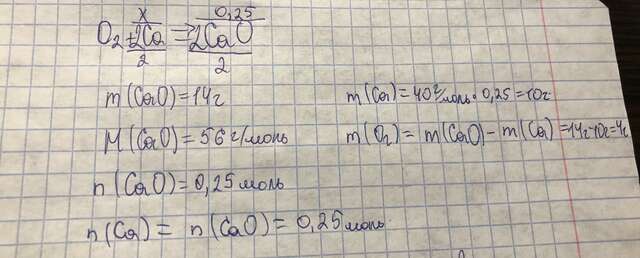 x 0,25
O₂ + 2Ca = 2CaO
2 2
m(CaO)=14г
M(CaO)=56г/моль
n(CaO)=0,25моль
n(Ca)= n(CaO)= 0,25моль
m(Ca)=40г/моль·0,25=10г
m(O₂)= m(CaO)-m(Ca)=14г-10г=4г